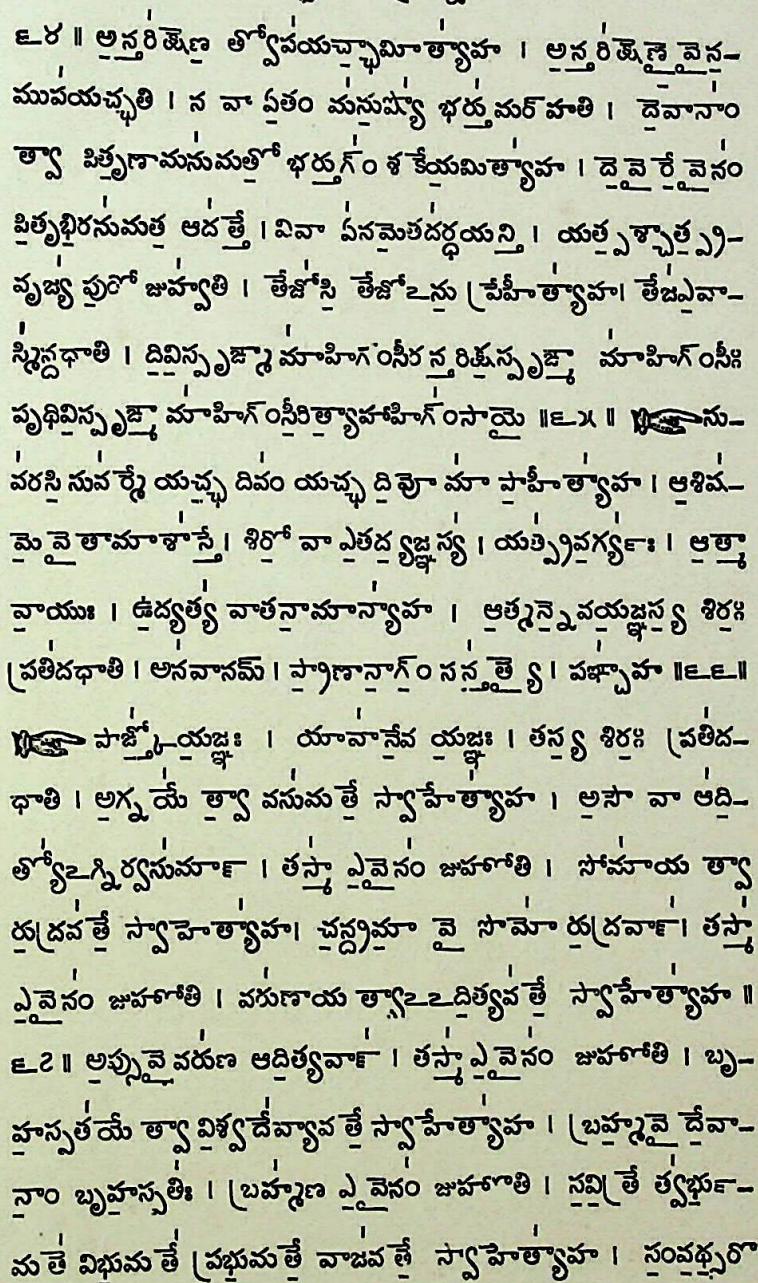 ౬౪ ॥ అ॒న్తరి॑క్షేణ॒ త్వోప॑యచ్ఛా॒మీత్యా॑హ । అ॒న్తరి॑క్షేణై॒వైన॒-
ముప॑యచ్ఛతి । న వా ఏ॒తం మ॑ను॒ష్యో॑ భర్తు॑మర్‌హతి । దే॒వానాం॑
త్వా పితృ॒ణామను॑మతో॒ భర్తుగ్ం॑ శకేయ॒మిత్యా॑హ । దే॒వైరే॒వైనం॑
పి॒తృభి॒రను॑మత॒ ఆద॑త్తే । వివా ఏ॑నమే॒తద॑ర్ధయన్తి॒ । యత్ప॒శ్చాత్ప్ర॒-
వృజ్య॑ పు॒రో జుహ్వ॑తి । తేజో॑సి॒ తేజోఽను॒ ప్రేహీత్యా॑హ। తేజ॑ఎ॒వా-
స్మి॑న్దధాతి । ది॒వి॒స్పృఙ్మా మా॑హిగ్ంసీరన్తరిక్ష॒స్పృఙ్మా మా॑హిగ్ంసీః
పృథివి॒స్పృఙ్మా మా॑హిగ్ంసీ॒రిత్యా॒హాహిగ్ం॑సాయై ॥౬౫॥ ☞ను-
వ॑రసి॒ సువ॑ర్మే యచ్ఛ॒ దివం॑ యచ్ఛ ది॒వో మా॑ పా॒హీత్యా॑హ । ఆ॒శిష॑-
మే॒వైతామాశా॑స్తే। శిరో॒ వా ఎ॒తద్య॒జ్ఞస్య॑ । యత్ప్ర॑వ॒గ్యః॑ । ఆ॒త్మా
వా॒యుః । ఉ॒ద్యత్య॑ వాతనా॒మాన్యా॑హ । ఆ॒త్మన్నే॒వయ॒జ్ఞస్య॒ శిరః॒
ప్రతి॑దధాతి । అన॑వానమ్ । ప్రా॒ణానా॒గ్ం సన్త॑త్యై । పఞ్చా॑హ ॥౬౬॥
☞ పాఙ్క్తో॑ య॒జ్ఞః । యావా॑నే॒వ య॒జ్ఞః । తస్య॒ శిరః॒ ప్రతి॑ద-
ధాతి । అ॒గ్నయే॑ త్వా॒ వసు॑మతే॒ స్వాహేత్యా॑హ । అ॒సౌ వా ఆ॑ది॒-
త్యో॑ఽగ్నిర్వసు॑మాన్ । తస్మా॑ ఎ॒వైనం॑ జుహోతి । సోమా॑య త్వా
రు॒ద్రవ॑తే॒ స్వాహేత్యా॑హ। చ॒న్ద్రమా॒ వై సోమో॑ రు॒ద్రవా॑న్। తస్మా॑
ఎ॒వైనం॑ జుహోతి । వరు॑ణాయ త్వాఽఽది॒త్యవ॑తే॒ స్వాహేత్యా॑హ ॥
౬౭॥ అ॒ప్సువై వరు॑ణ ఆది॒త్యవా॑న్ । తస్మా॑ ఎ॒వైనం॑ జుహోతి । బృ-
హ॒స్పత॑యే త్వా వి॒శ్వదే॑వ్యావతే॒ స్వాహేత్యా॑హ । బ్రహ్మ॒వై దే॒వా-
నాం॒ బృహ॒స్పతిః॑ । బ్రహ్మ॑ణ ఎ॒వైనం॑ జుహోతి । స॒వి॒త్రే త్వ॑ర్భు-
మతే॑ విభు॒మతే॑ ప్రభు॒మతే॒ వాజ॑వతే॒ స్వాహేత్యా॑హ । సం॒వ॒థ్సరో